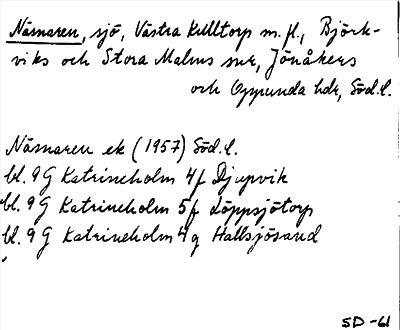 Näsnaren, sjö, Västra Kulltorp m. fl., Björk-
viks och Stora Malms snr, Jönåkers
och Oppunda hdr, Söd. l.
Näsnaren ek (1957) Söd. l.
bl. 9 G Katrineholm 4f Djupvik
bl. 9 G Katrineholm 5f Löppsjötorp
bl. 9 G Katrineholm 4g Hallsjösand
SD-61